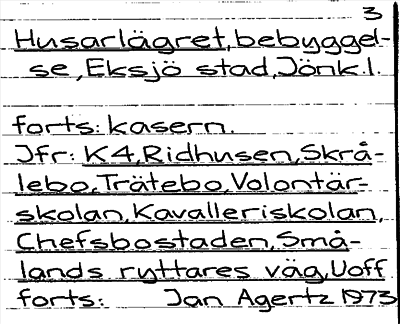 3
Husarlägret, bebyggel-
se, Eksjö stad, Jönk.l.
forts: kasern.
Jfr: K4, Ridhusen, Skrå-
lebo, Trätebo, Volontär-
skolan, Kavalleriskolan,
Chefsbostaden, Små-
lands ryttares väg, Uoff
forts: Jan Agertz 1973